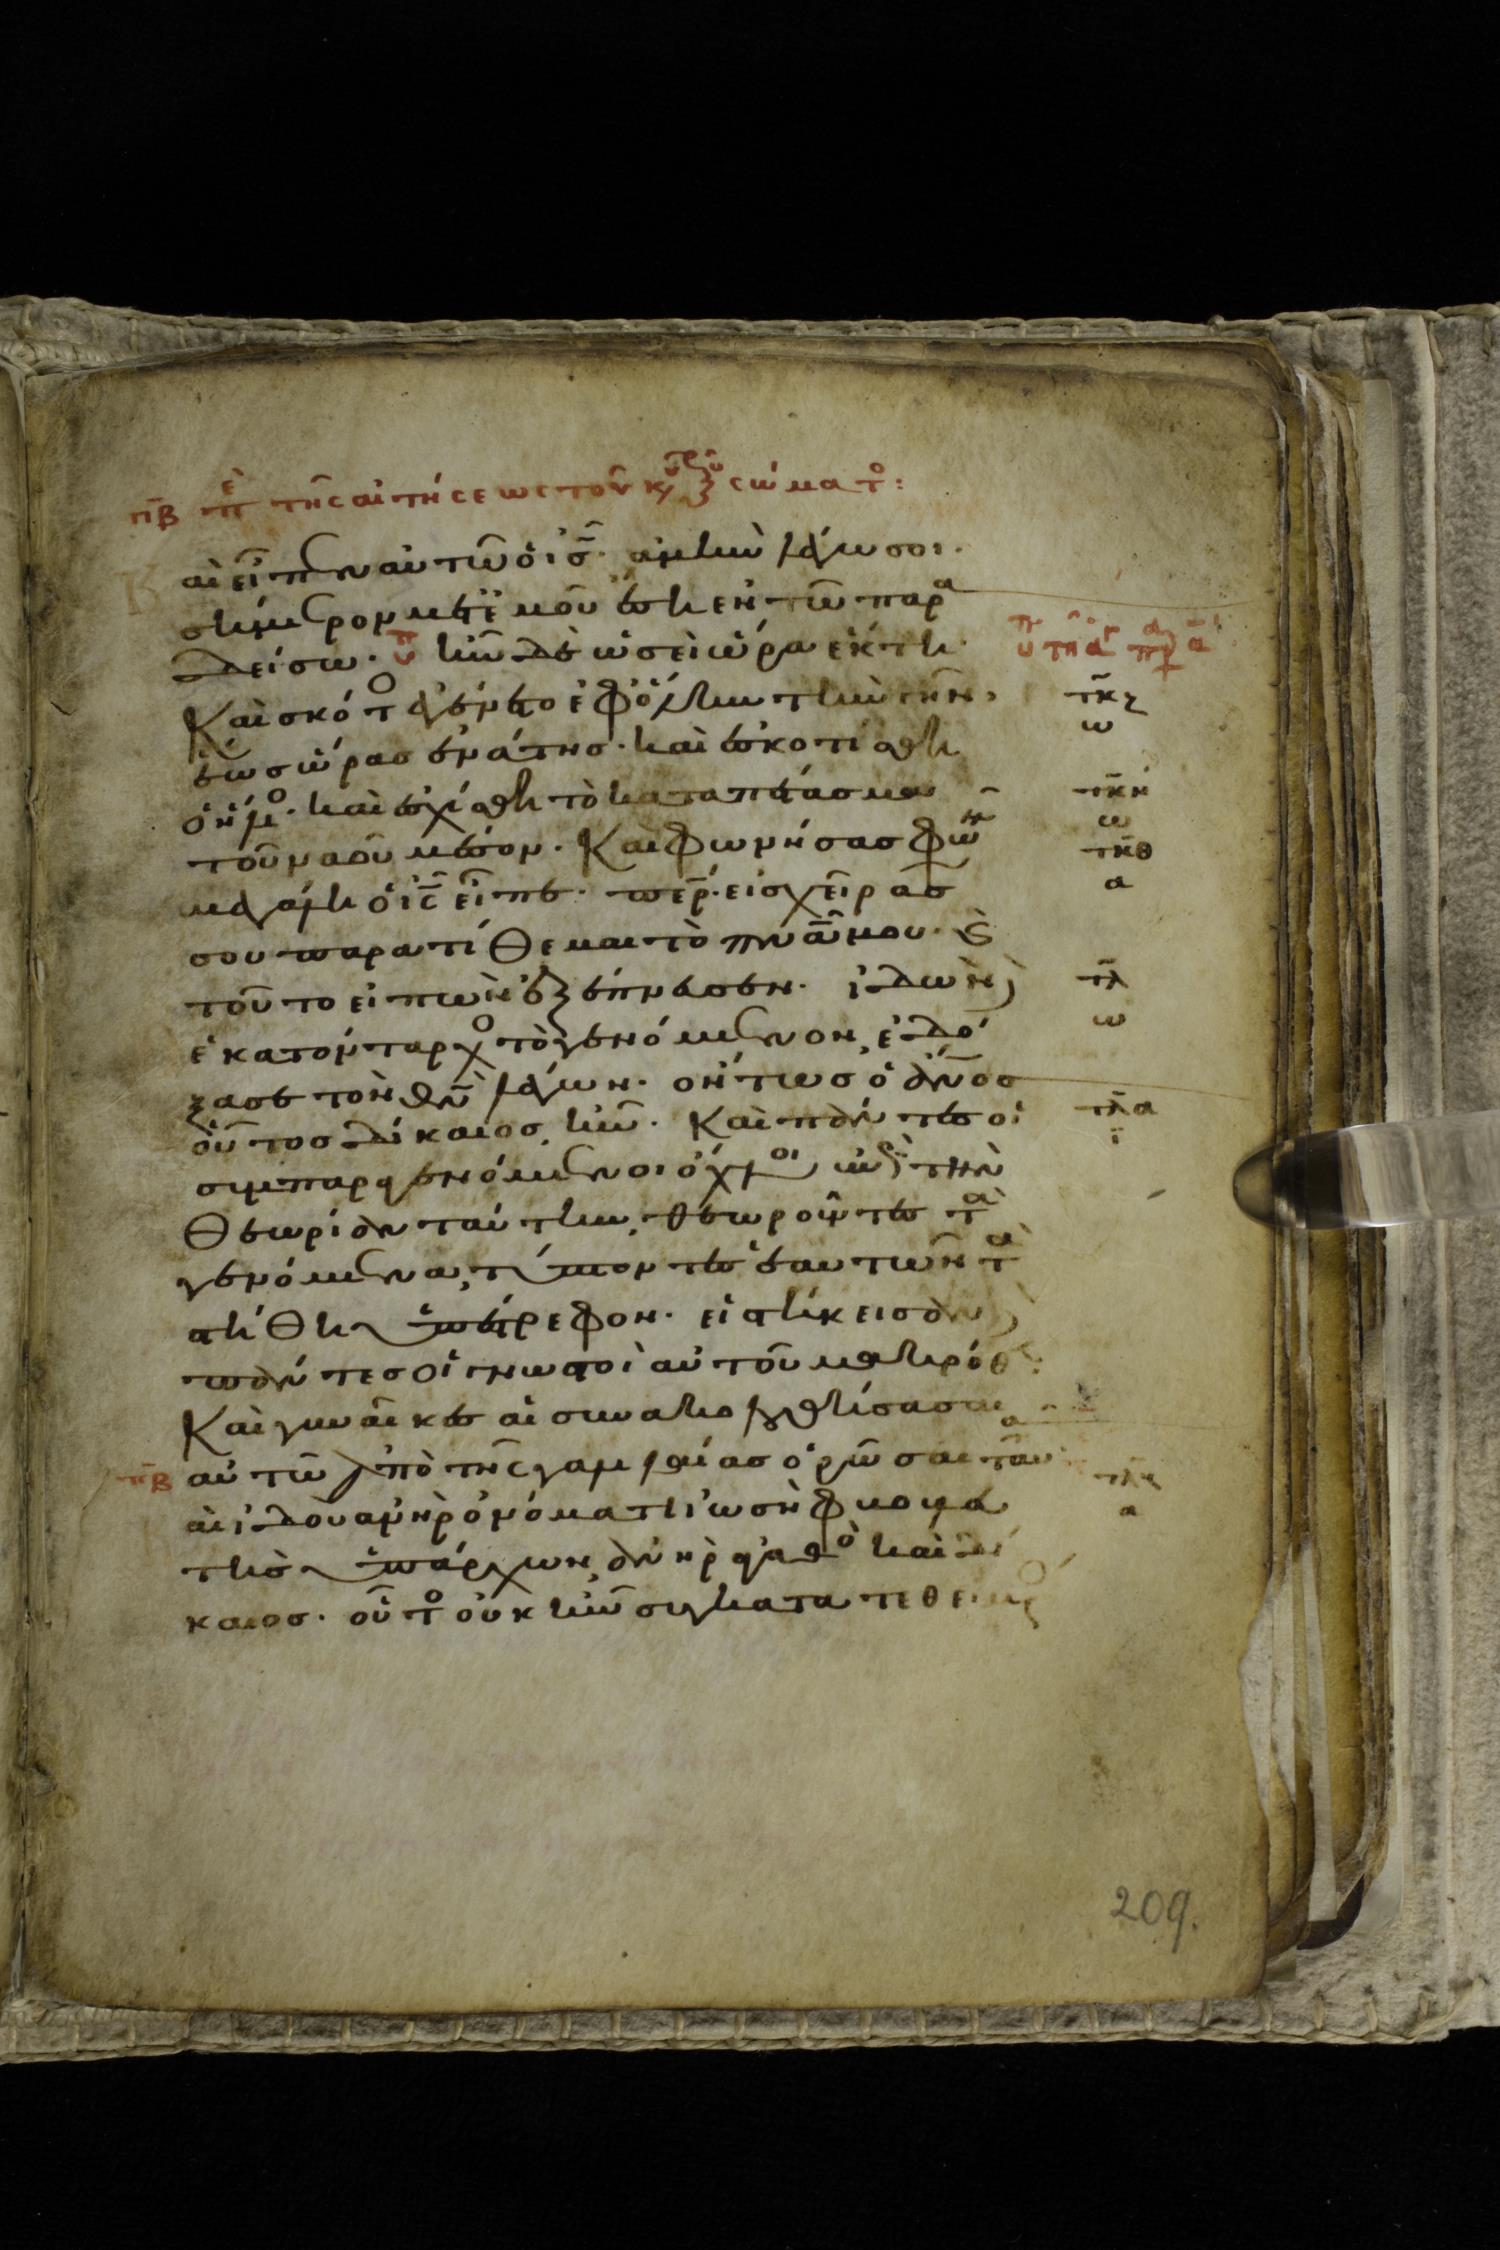 π̅β̅ πε τῆς αἰτήσεως τοῦ κυ̅ σώματο:
αὶ εἶπεν αὐτῶ ὁ ι̅ς̅· ἀμὴν λέγω σοι·
σήμερον μετ' ἐμοῦ ἔση ἐν τῶ παρα
δείσω· ἦν δὲ ὡσεὶ ὥρα ἕκτη·
Καὶ σκότο ἐγένετο ἐφ' ὅλην τὴν γῆν,
ἕως ὥρας ἐνάτης· καὶ ἐσκοτίσθη
ὁ ἥλιο· καὶ ἐσχίσθη τὸ καταπέτασμα
τοῦ ναοῦ μέσον· Καὶ φωνήσας φων
μεγάλη ὁ ι̅ς̅ εἶπε· περ· εἰς χεῖρας
σου παρατίθεμαι τὸ πνα̅ μου· κ
τοῦτο εἰπὼν ἐξέπνευσεν· ἰδὼν
ἑκατόνταρχο τὸ γενόμενον, ἐδό
ξασε τὸν θν̅ λέγων· ὄντως ὁ ἄνος
οὗτος δίκαιος ἦν· Καὶ πάντες οἱ
συμπαραγενόμενοι ὄχλοι ἐπὶ τὴν
θεωρίαν ταύτην, θεωροῦντες τα
γενόμενα, τύπτοντες ἑαυτῶν τα
στήθη ὑπέστρεφον· εἱστήκεισαν
πάντες οἱ γνωστοὶ αὐτοῦ μακρόθ:
Καὶ γυναῖκες αἱ συνακολουθήσασαι
π̅β̅ αὐτῶ ἀπὸ τῆς γαλιλαίας ὁρῶσαι ταυ
αὶ ἰδοὺ ἀνὴρ ὀνόματι ἰωσὴφ βουλευ
τὴς ὑπάρχων, ἀνὴρ ἀγαθο καὶ δί
καιος· οὗτο οὐκ ἦν συγκατατεθειμ
τ̅κ̅ζ̅
ω
τ̅κ̅η̅
ω
τ̅κ̅θ̅
α
τ̅λ̅
ω
τ̅λ̅α̅
ι
τ̅λ̅β̅
α
209.